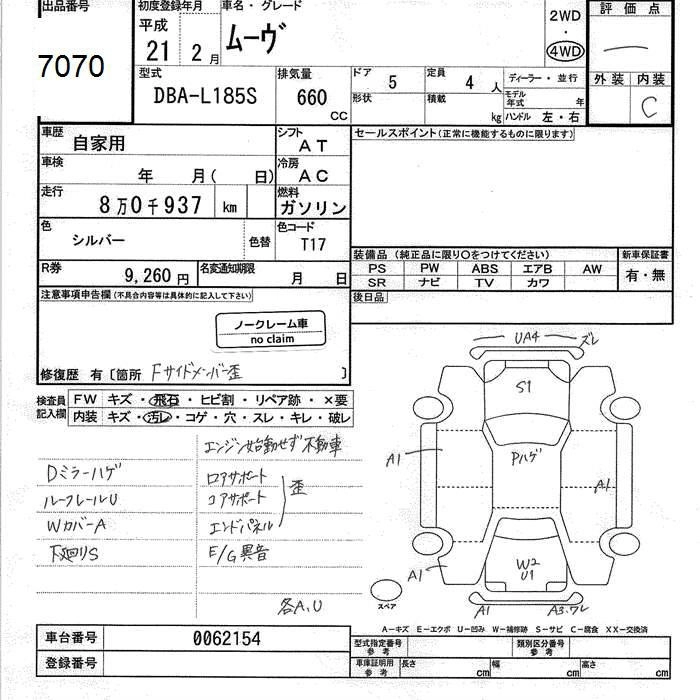 出品番号 初度登録年月 車名・グレード 評価点
7070 平成 21 2月 ムーヴ 2WD・4WD
外装 内装 C
型式 DBA-L185S 排気量 660 CC ドア 5 定員 4 人 ディーラー・並行
形状 積載 kg モデル年式 年 ハンドル 左・右
車歴 自家用 シフト AT セールスポイント(正常に機能するものに限ります)
車検 年 月( 日) 冷房 AC
走行 8万0千937 km 燃料 ガソリン
色 シルバー 色替 色コード T17
装備品 (純正品に限り○をつけてください) 新車保証書
PS PW ABS エアB AW 有・無
SR ナビ TV カワ
R券 9,260円 名変通知期限 月 日
後日品
注意事項申告欄(不具合内容等は具体的に記入して下さい)
ノークレーム車
no claim
修復歴 有〔箇所 Fサイドメンバー歪 〕
検査員記入欄 FW キズ・飛石・ヒビ割・リペア跡・×要
内装 キズ・汚レ・コゲ・穴・スレ・キレ・破レ
エンジン始動せず不動車
Dミラーハゲ ロアサポート
ルーフレールU コアサポート 歪
WカバーA エンドパネル
下廻りS E/G異音
各A,U
UA4 ズレ
S1
Pハゲ
A1 A1
W2
U1
A1
スペア A1 A3.ワレ
A―キズ E―エクボ U―凹み W―補修跡 S―サビ C―腐食 XX―交換済
車台番号 0062154 型式指定番号 参考 類別区分番号 参考
登録番号 車庫証明用 参考 長さ cm 幅 cm 高さ cm